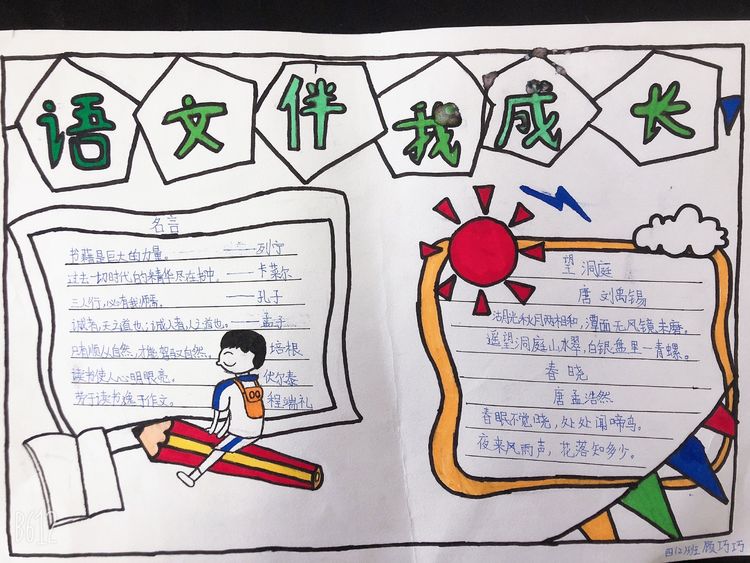 语文伴我成长
名言
书籍是巨大的力量。——列宁
过去一切时代的精华尽在书中。——卡莱尔
三人行,必有我师焉。——孔子
诚者,天之道也;诚人者,人之道也。——孟子
只有顺从自然,才能驾驭自然。 培根
读书使人心明眼亮。 伏尔泰
劳于读书逸于作文。 程端礼
望洞庭
唐 刘禹锡
湖光秋月两相和,潭面无风镜未磨。
遥望洞庭山水翠,白银盘里一青螺。
春晓
唐孟浩然
春眠不觉晓,处处闻啼鸟。
夜来风雨声,花落知多少。
班 巧巧
B612